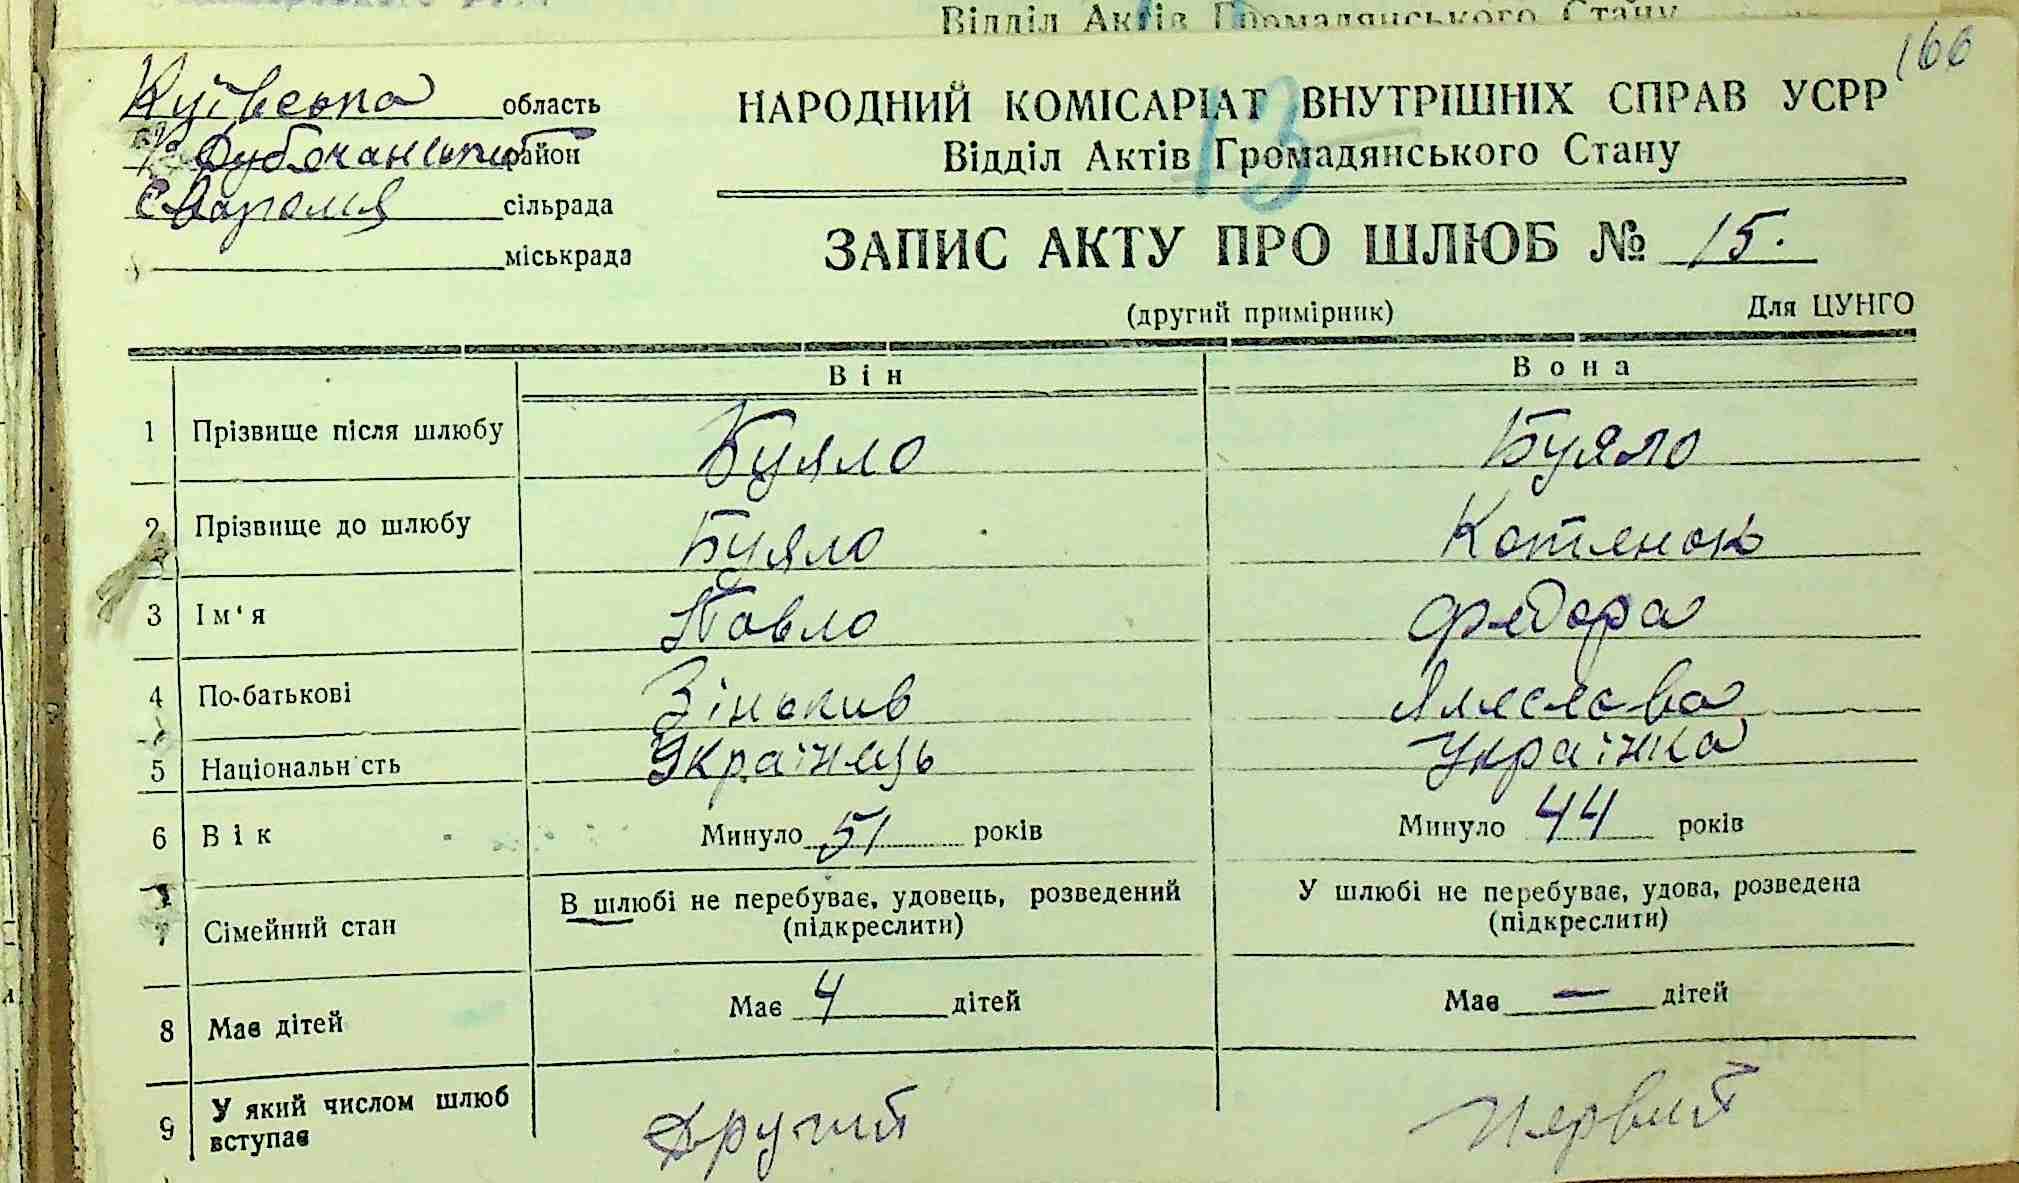 Відділ Актів Громадянського Стану
166
Київська область
Дубечанський район
Сваромя сільрада
міськрада
НАРОДНИЙ КОМІСАРІАТ ВНУТРІШНІХ СПРАВ УСРР
13
Відділ Актів Громадянського Стану
ЗАПИС АКТУ ПРО ШЛЮБ № 15.
(другий примірник) Для ЦУНГО
Він Вона
1 Прізвище після шлюбу Буяло Буяло
2 Прізвище до шлюбу Буяло Котенок
3 Ім'я Павло Федора
4 По-батькові Зіньків
5 Національність Українець Українка
6 Вік Минуло 51 років Минуло 44 років
7 Сімейний стан В шлюбі не перебуває, удовець, розведений У шлюбі не перебуває, удова, розведена
(підкреслити) (підкреслити)
8 Має дітей Має 4 дітей Має — дітей
9 У який числом шлюб вступає Другий Первий